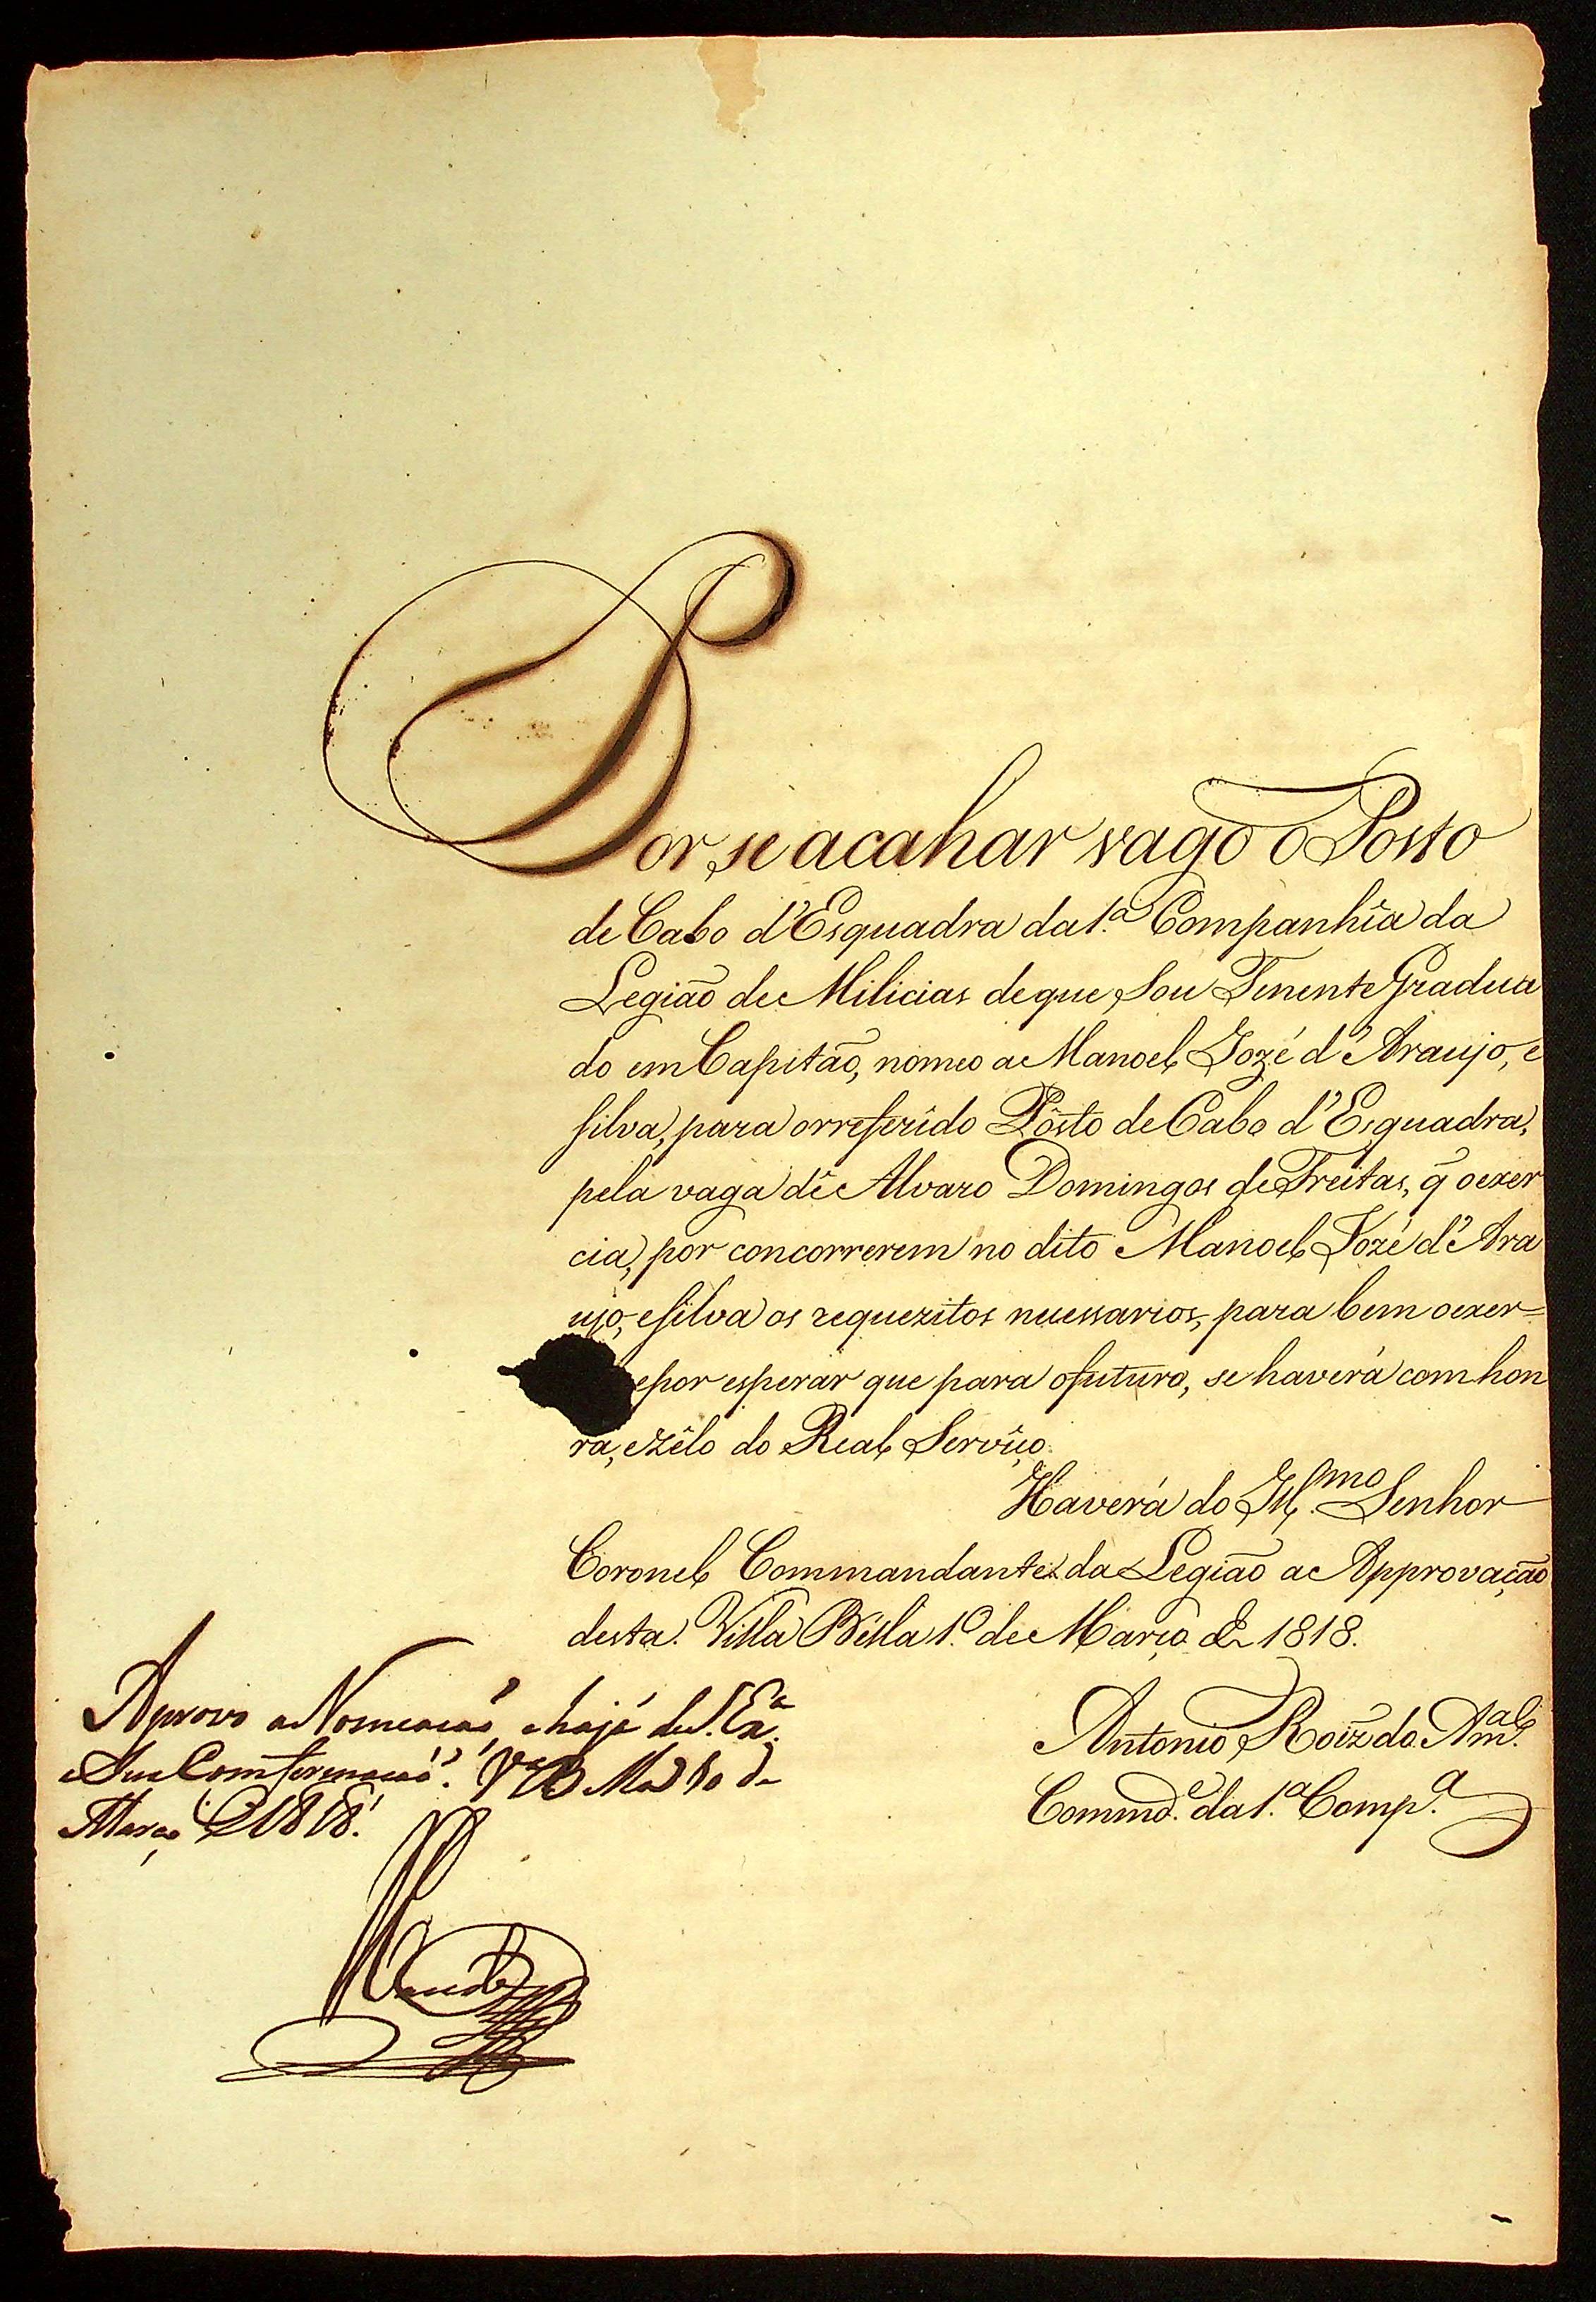 Por se acahar vago o Posto
de Cabo d'Esquadra da 1.ª Companhîa da
Legião de Milicias de que Sou Tenente Gradua
do em Capitão, nomeo a Manoel Jozé d'Araujo, e
Silva, para o rreferîdo Pôsto de Cabo d'Esquadra,
pela vaga de Alvaro Domingos de Freitas, q̃ o exer
cia, por concorrerem no dito Manoel Jozé d'Ara
ujo, e Silva os requezitos necessarios, para bem o exer=
e por esperar que para o futuro, se haverá com hon
ra, e zêlo do Real Servîço.
Haverá do Ill.mo Senhor
Coronel Commandante da Legião a Approvação
desta. Villa Bélla 1.º de Março de 1818.
Aprovo a Nomeacaó, e haja de S. Exª
a Sua Comfermacaó. Vª Bª 10 de
Março de 1818.
Antonio Roiz do Am.al
Commd.e da 1.ª Comp.ª